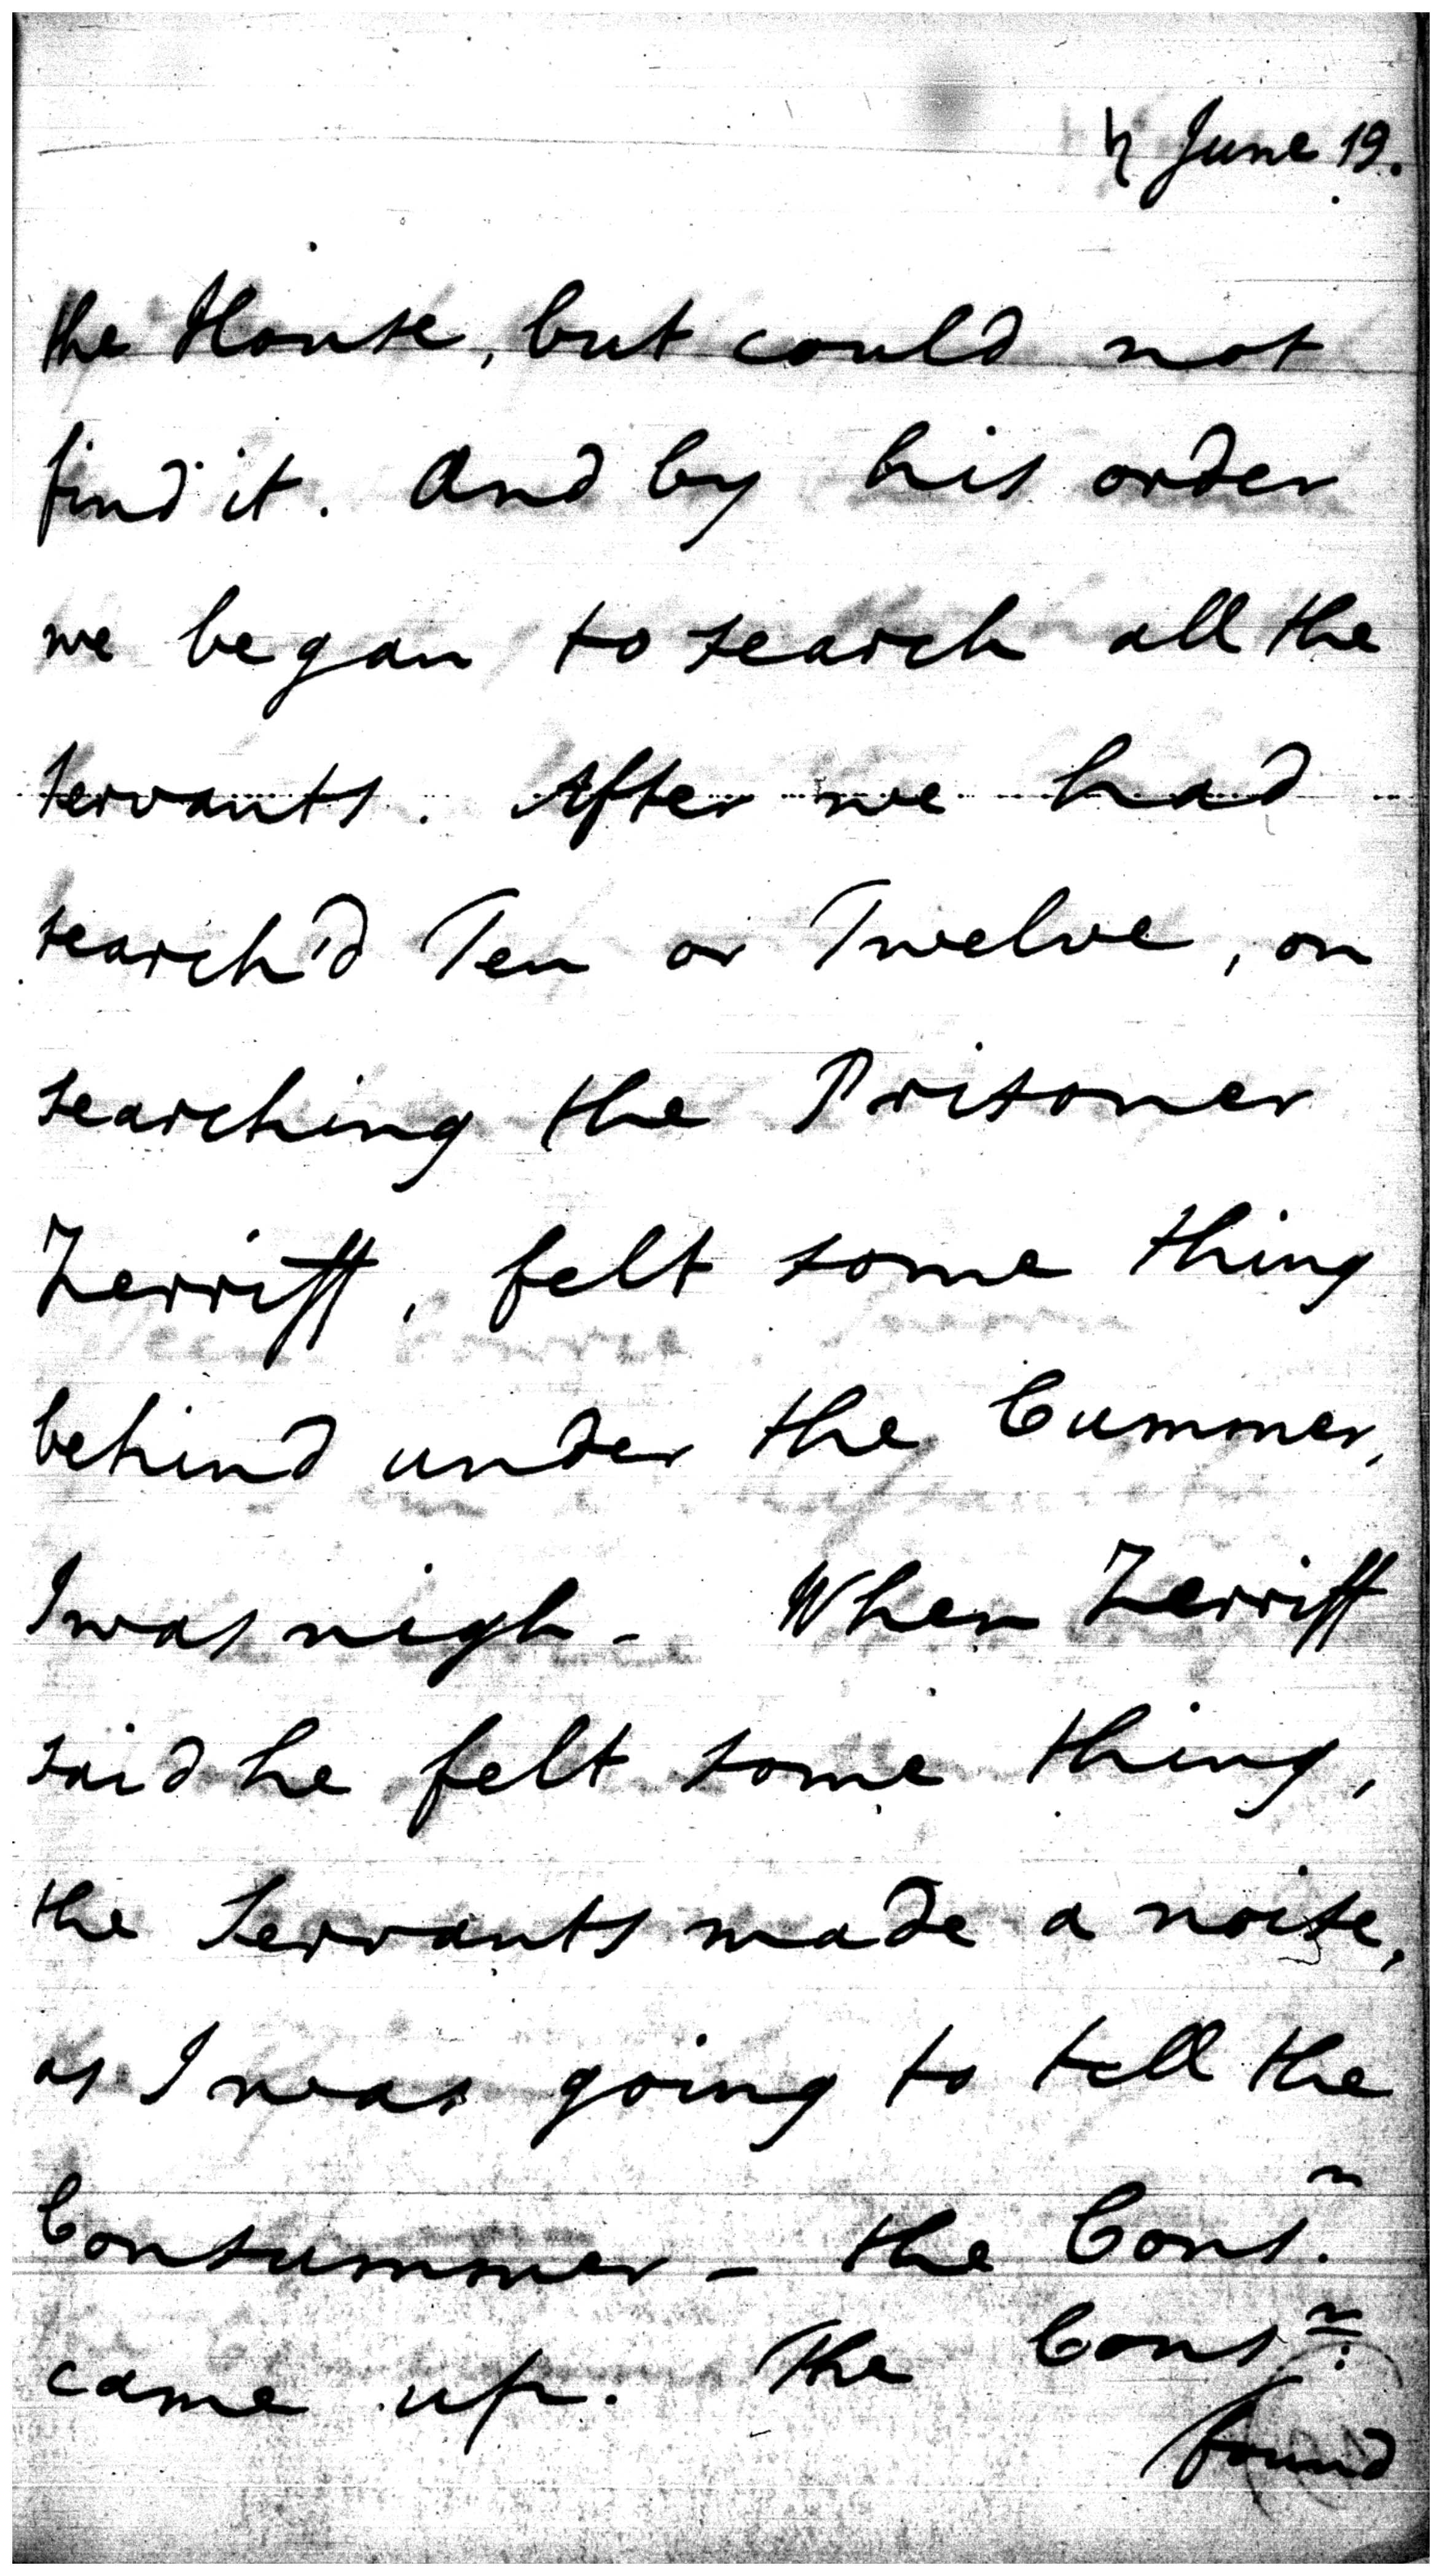 ♄ June 19.
the House, but could not
find it. And by his order
we began to search all the
servants. After we had
search'd Ten or Twelve, on
searching the Prisoner
Zerriff, felt some thing
behind under the Cummer,
I was nigh - When Zerriff
said he felt some thing,
the Servants made a noise,
as I was going to tell the
Consummer - the Consn.
came up. The Consn.
found